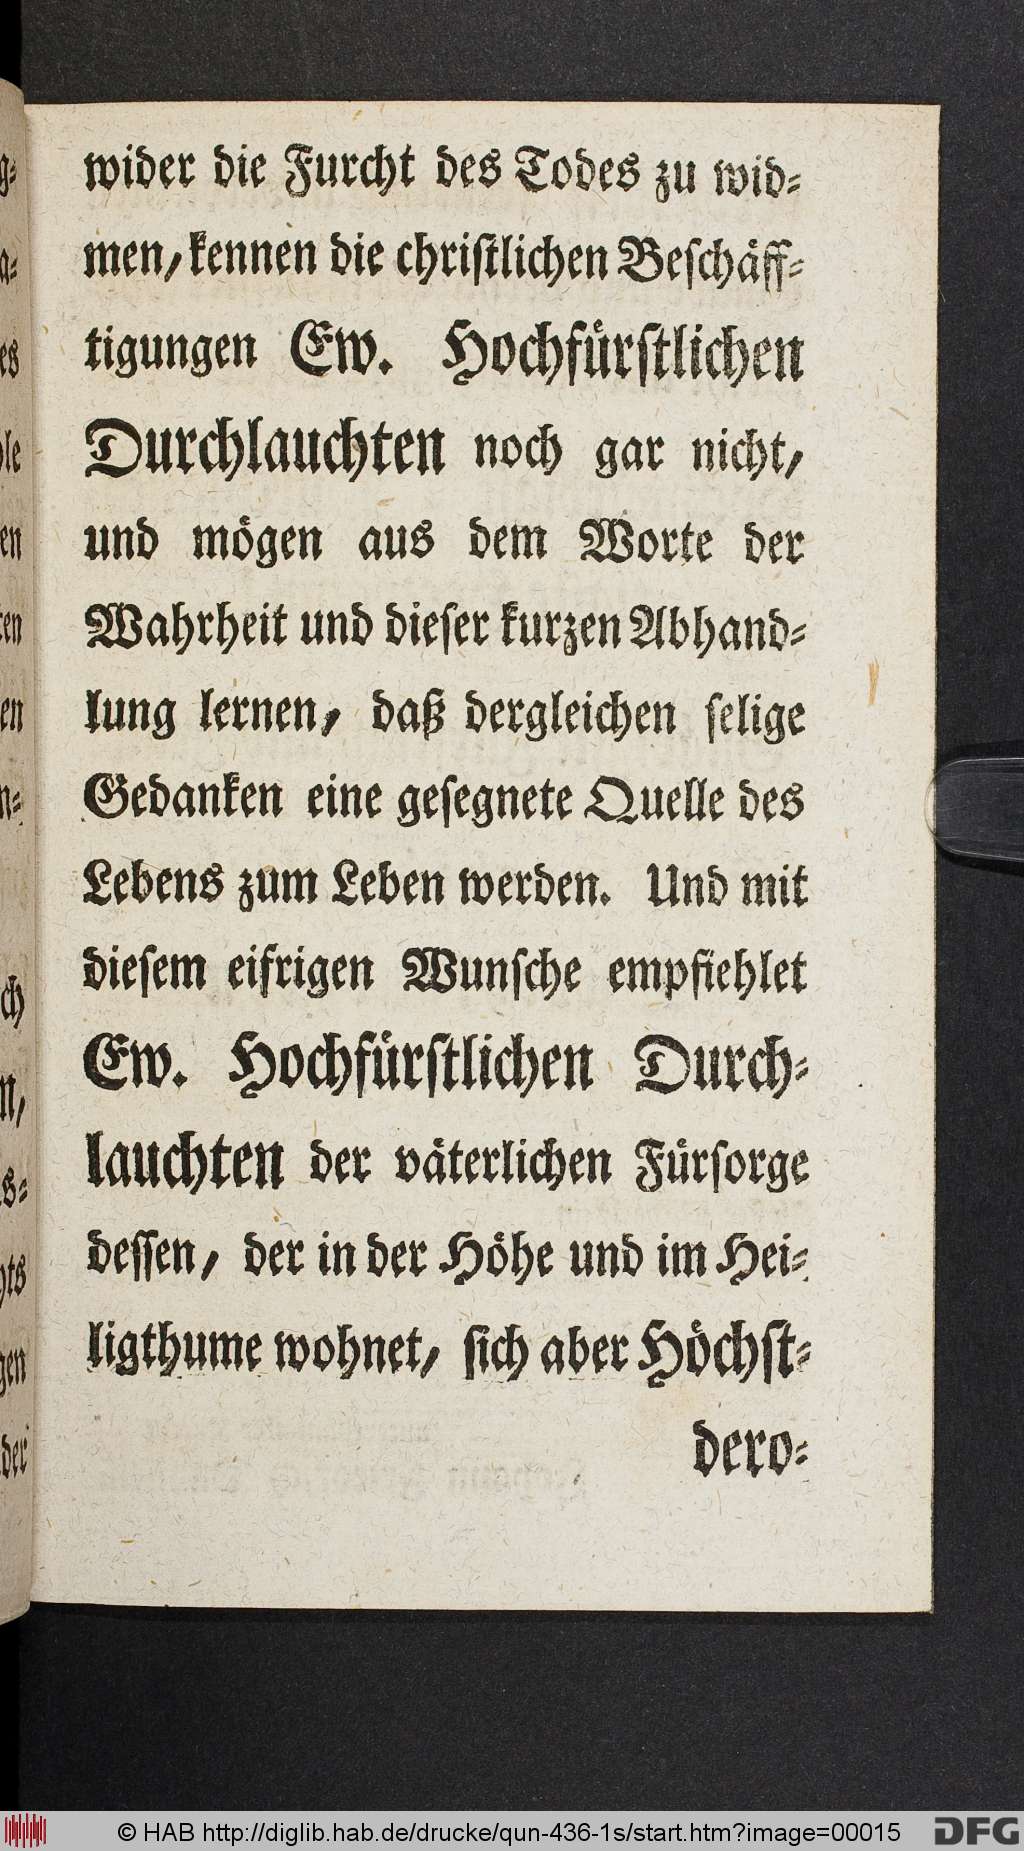 wider die Furcht des Todes zu wid⸗
men, kennen die christlichen Beschäff⸗
tigungen Ew. Hochfürstlichen
Durchlauchten noch gar nicht,
und mögen aus dem Worte der
Wahrheit und dieser kurzen Abhand⸗
lung lernen, daß dergleichen selige
Gedanken eine gesegnete Quelle des
Lebens zum Leben werden. Und mit
diesem eifrigen Wunsche empfiehlet
Ew. Hochfürstlichen Durch⸗
lauchten der väterlichen Fürsorge
dessen, der in der Höhe und im Hei⸗
ligthume wohnet, sich aber Höchst⸗
dero⸗
© HAB http://diglib.hab.de/drucke/qun-436-1s/start.htm?image=00015
DFG